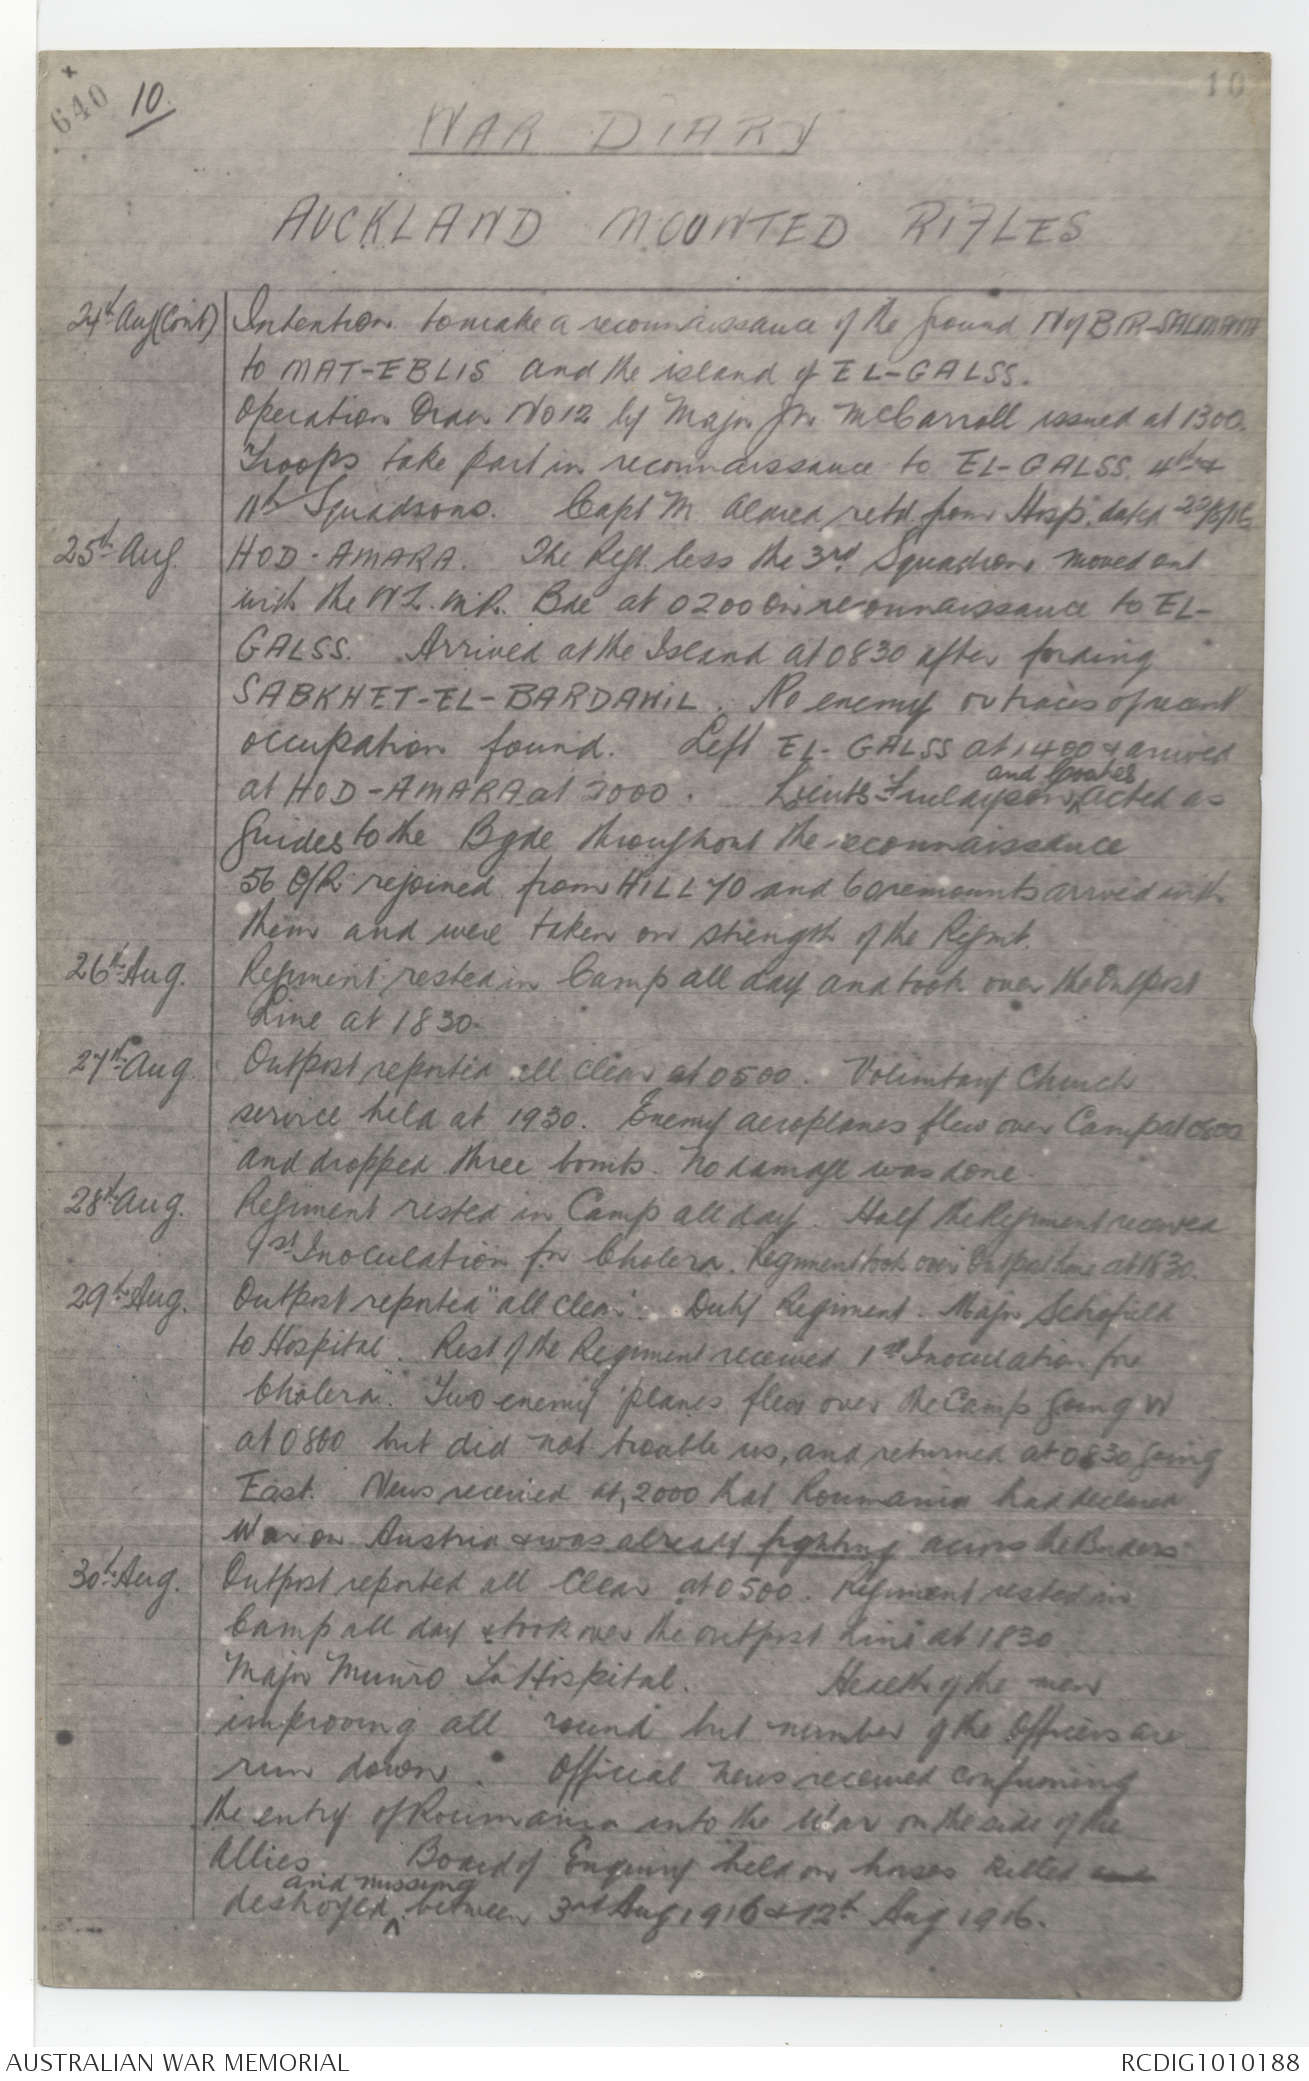 640
10.
10
WAR DIARY
AUCKLAND MOUNTED RIFLES
24th Aug (Cont) Intention to make a reconnaissance of the ground N of BIR-SALMANA
to MAT-EBLIS and the island of EL-GALSS.
Operation Order No 12 by Major McCarroll issued at 1300.
Troops take part in reconnaissance to EL-GALSS. 4th &
11th Squadrons. Capt M retd from Hosp. dated
25th Aug. HOD-AMARA. The Regt. less the 3rd Squadron moved out
with the N.Z.M.R. Bde at 0200 on reconnaissance to EL-
GALSS. Arrived at the Island at 0830 after fording
SABKHET-EL-BARDAWIL. No enemy or traces of recent
occupation found. Left EL-GALSS at 1400 & arrived
and Coates
at HOD-AMARA at 2000. Lieuts Finlayson acted as
Guides to the Bgde throughout the reconnaissance
56 O/R rejoined from HILL 70 and 60 remounts arrived with
them and were taken on strength of the Regmt.
26th Aug. Regiment rested in Camp all day and took over the Outpost
Line at 1830.
27th Aug Outpost reported all clear at 0500. Voluntary Church
service held at 1930. Enemy aeroplanes flew over Camp at
and dropped three bombs. No damage was done.
28th Aug. Regiment rested in Camp all day. Half the Regiment received
1st Inoculation for Cholera. Regiment took over Outpost line at 1830.
29th Aug. Outpost reported "all clear". Duty Regiment. Major Schofield
to Hospital. Rest of the Regiment received 1st Inoculation for
Cholera. Two enemy planes flew over the Camp going W
at 0800 but did not trouble us, and returned at 0830 going
East. News received at, 2000 that Roumania had declared
War on Austria & was already fighting across the Borders
30th Aug. Outpost reported all Clear at 0500. Regiment rested in
Camp all day & took over the outpost Line at 1830
Major Munro To Hospital. Health of the men
improving all round but number of the Officers are
run down. Official News received confirming
the entry of Roumania into the War on the side of the
Allies. Board of Enquiry held on horses killed
and missing
destroyed between 3rd Aug 1916 & 12th Aug 1916.
AUSTRALIAN WAR MEMORIAL
RCDIG1010188